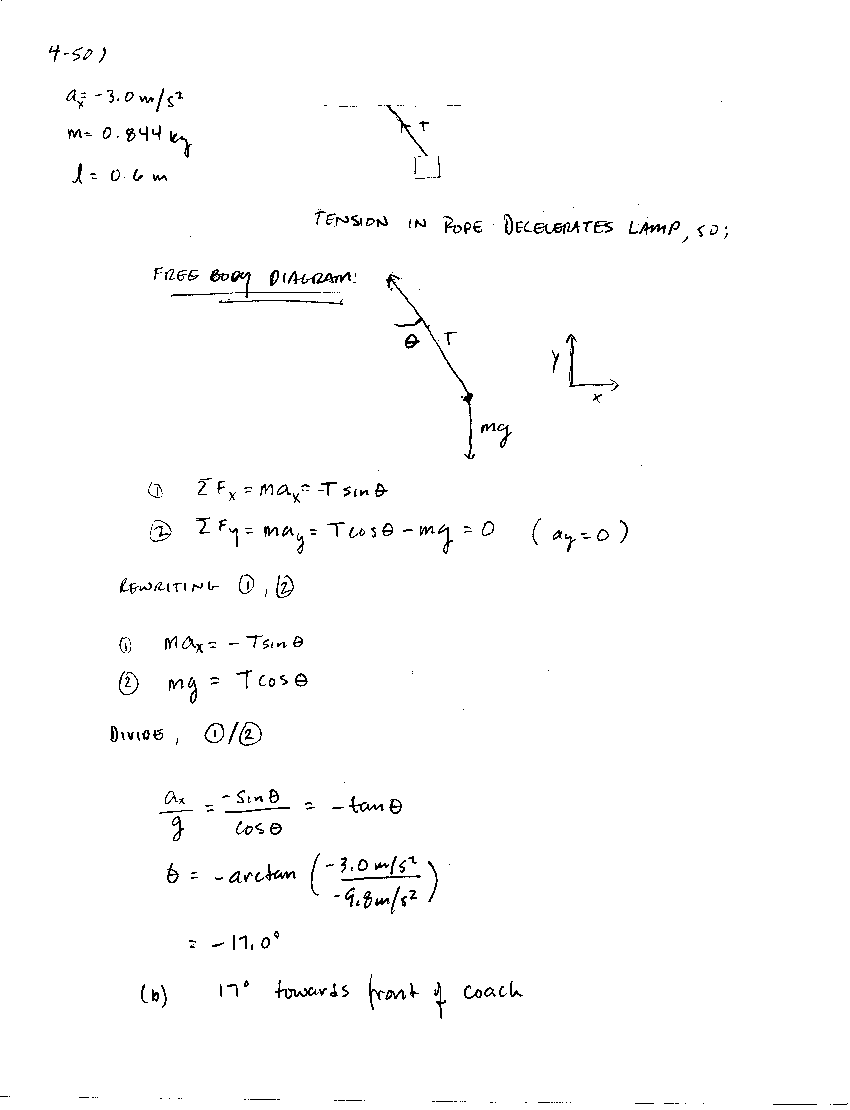 4-50)
a_x = -3.0 m/s²
m = 0.844 kg
l = 0.6 m
T
TENSION IN ROPE DECELERATES LAMP, SO;
FREE BODY DIAGRAM:
θ T
y
x
mg
① ΣF_x = ma_x = -T sin θ
② ΣF_y = ma_y = T cos θ - mg = 0 (a_y = 0)
REWRITING ①, ②
① ma_x = - T sin θ
② mg = T cos θ
DIVIDE, ①/②
a_x/g = - sin θ/cos θ = - tan θ
θ = - arctan (-3.0 m/s² / -9.8 m/s²)
= - 17.0°
(b) 17° towards front of coach